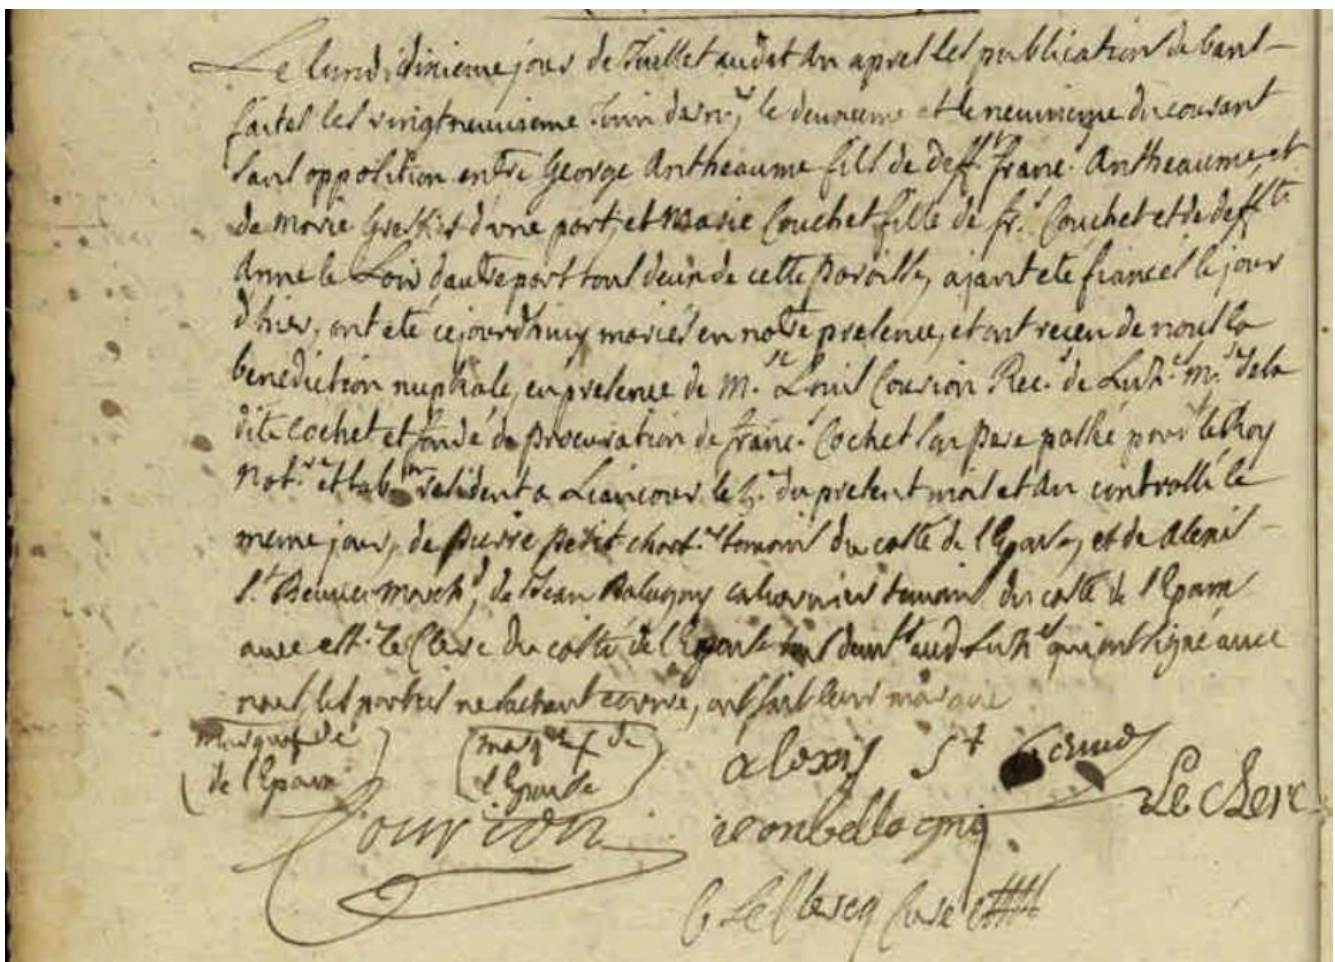 Le lundi dixieme jour de Juillet audit An apres les publication de bans
faites les vingtneuvieme Juin dern.r, le deuxieme et le neuvieme du courant
sans opposition entre George Antheaume fils de deff.t franc.s Antheaume, et
de Marie d'une part, et Marie Couchet fille de fr.s Couchet et de deff.te
Anne le Loir d'autre part tous deux de cette paroisse, ajant eté fiancés le jour
d'hier, ont eté cejourd'huy mariés en notre presence, et ont receu de nous la
benediction nuptiale, en presence de M. Louis Courion Rec. de M. de la
dite Cochet et fondé de procuration de franc.s Cochet son pere passé pour le Roy
Not.re et resident a Liancour le du present mois et An controllé le
meme jour, de pierre petit temoin du costé de l'Epouse, et de Alexis
S.t March.d, de Jean Balagny temoins du costé de l'Epoux
avec le Clerc du costé de l'Epouse tous qui ont signé avec
nous, les parties ne sachant ecrire, ont fait leur marque
marque de
de l'Epoux
marque de
l'Epouse
alexis St
Le Clerc
Courion
jean bellagny
Le Clercq Curé